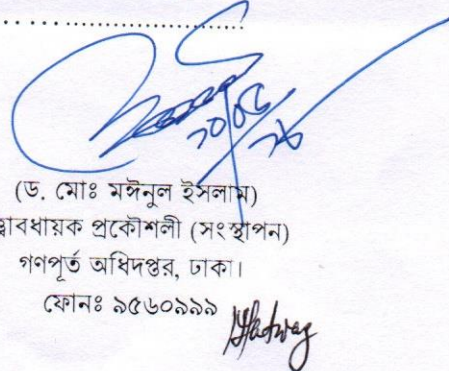 (ড. মোঃ মঈনুল ইসলাম)
ত্ত্বাবধায়ক প্রকৌশলী (সংস্থাপন)
গণপূর্ত অধিদপ্তর, ঢাকা।
ফোনঃ ৯৫৬০৯৯৯